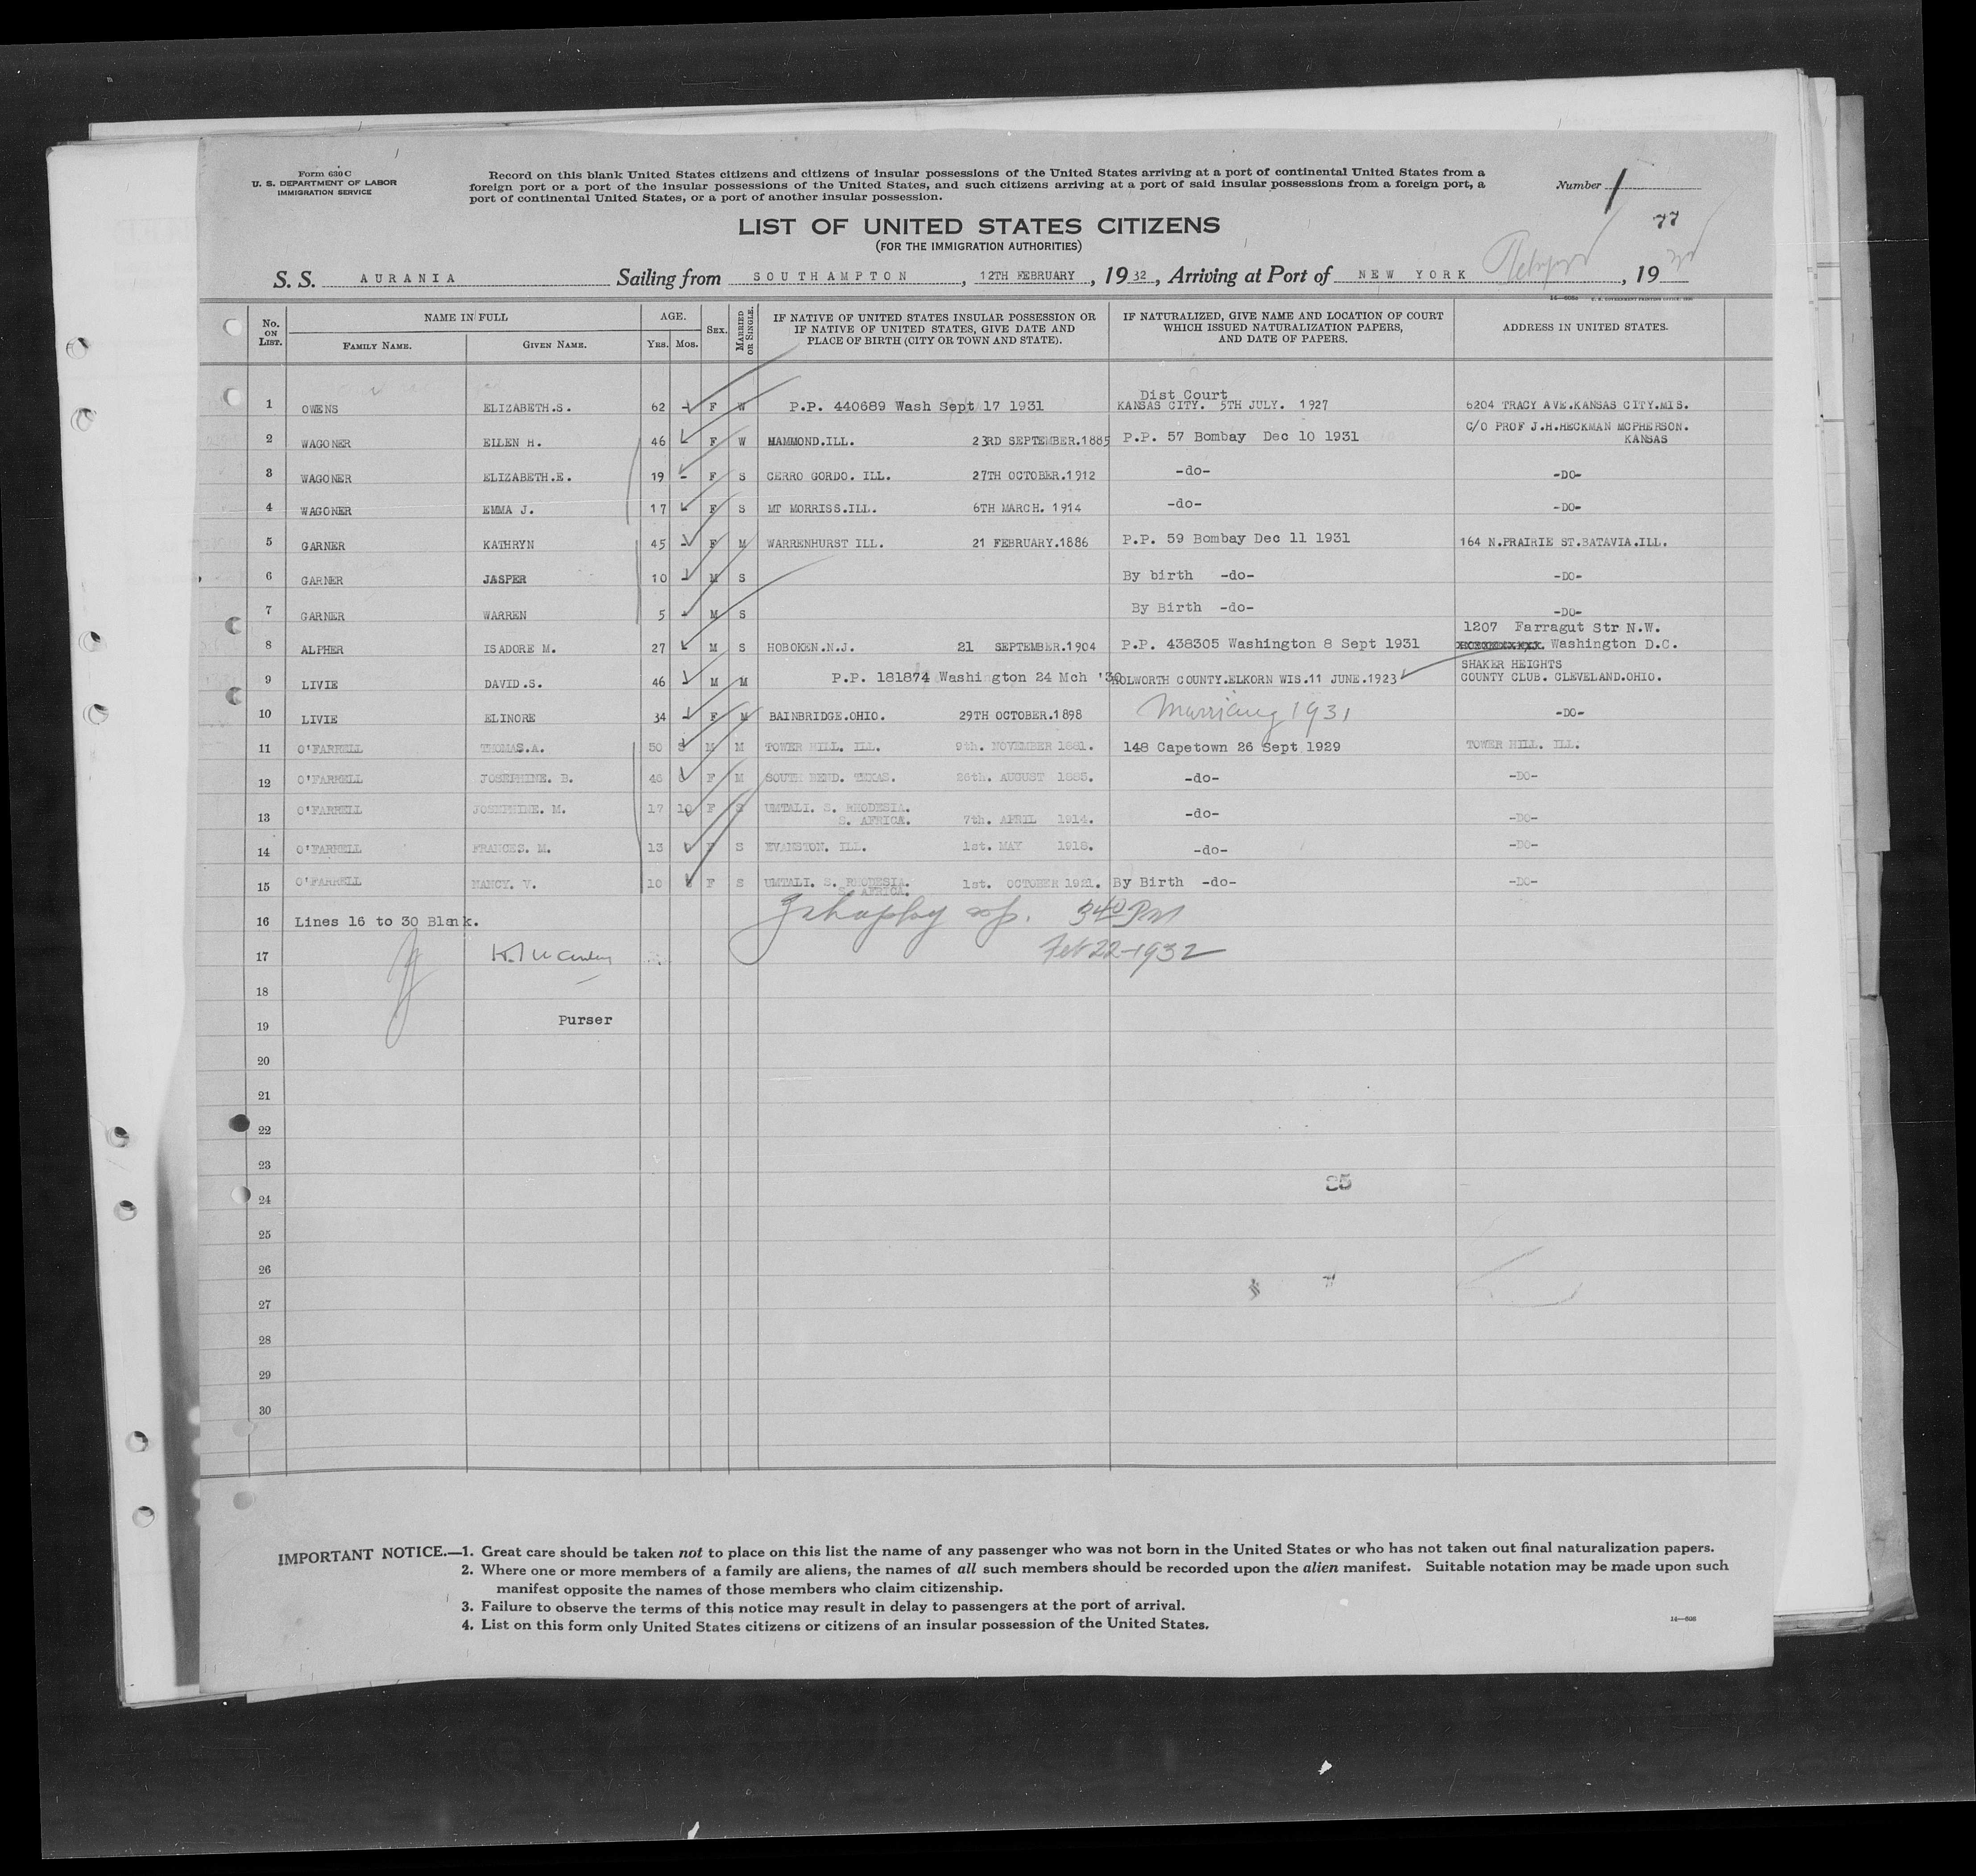 Form 630 C
U. S. DEPARTMENT OF LABOR
IMMIGRATION SERVICE
Record on this blank United States citizens and citizens of insular possessions of the United States arriving at a port of continental United States from a
foreign port or a port of the insular possessions of the United States, and such citizens arriving at a port of said insular possessions from a foreign port, a
port of continental United States, or a port of another insular possession.
Number 1
77
LIST OF UNITED STATES CITIZENS
(FOR THE IMMIGRATION AUTHORITIES)
S. S. AURANIA Sailing from SOUTHAMPTON, 12TH FEBRUARY, 1932, Arriving at Port of NEW YORK, 19
No. ON LIST. NAME IN FULL AGE. SEX. MARRIED OR SINGLE. IF NATIVE OF UNITED STATES INSULAR POSSESSION OR IF NATIVE OF UNITED STATES, GIVE DATE AND PLACE OF BIRTH (CITY OR TOWN AND STATE). IF NATURALIZED, GIVE NAME AND LOCATION OF COURT WHICH ISSUED NATURALIZATION PAPERS, AND DATE OF PAPERS. ADDRESS IN UNITED STATES.
FAMILY NAME. GIVEN NAME. YRS. MOS.
Dist Court
1 OWENS ELIZABETH.S. 62 - F W P.P. 440689 Wash Sept 17 1931 KANSAS CITY. 5TH JULY. 1927 6204 TRACY AVE.KANSAS CITY.MIS.
2 WAGONER EILEN H. 46 F W HAMMOND.ILL. 23RD SEPTEMBER.1885 P.P. 57 Bombay Dec 10 1931 C/O PROF J.H.HECKMAN MCPHERSON.
KANSAS
3 WAGONER ELIZABETH.E. 19 - F S CERRO GORDO. ILL. 27TH OCTOBER.1912 -do- -DO-
4 WAGONER EMMA J. 17 F S MT MORRISS.ILL. 6TH MARCH. 1914 -do- -DO-
5 GARNER KATHRYN 45 - F M WARRENHURST ILL. 21 FEBRUARY.1886 P.P. 59 Bombay Dec 11 1931 164 N.PRAIRIE ST.BATAVIA.ILL.
6 GARNER JASPER 10 - M S By birth -do- -DO-
7 GARNER WARREN 5 - M S By Birth -do- -DO-
1207 Farragut Str N.W.
8 ALPHER ISADORE M. 27 M S HOBOKEN.N.J. 21 SEPTEMBER.1904 P.P. 438305 Washington 8 Sept 1931 Washington D.C.
SHAKER HEIGHTS
9 LIVIE DAVID.S. 46 M M P.P. 181874 Washington 24 Mch '30 HOLWORTH COUNTY.ELKORN WIS.11 JUNE.1923 COUNTY CLUB. CLEVELAND.OHIO.
10 LIVIE ELINORE 34 - F M BAINBRIDGE.OHIO. 29TH OCTOBER.1898 Marriage 1931 -DO-
11 O'FARRELL THOMAS.A. 50 3 M M TOWER HILL. ILL. 9th. NOVEMBER 1881. 148 Capetown 26 Sept 1929 TOWER HILL. ILL.
12 O'FARRELL JOSEPHINE. B. 46 F M SOUTH BEND. TEXAS. 26th. AUGUST 1885. -do- -DO-
13 O'FARRELL JOSEPHINE. M. 17 10 F S UMTALI. S. RHODESIA.
S. AFRICA. 7th. APRIL 1914. -do- -DO-
14 O'FARRELL FRANCES. M. 13 F S EVANSTON. ILL. 1st. MAY 1918. -do- -DO-
15 O'FARRELL NANCY. V. 10 F S UMTALI. S. RHODESIA. 1st. OCTOBER 1921. By Birth -do- -DO-
S. AFRICA.
16 Lines 16 to 30 Blank. 340 PM
17 Feb 22-1932
18
19 Purser
20
21
22
23
24
25
26
27
28
29
30
IMPORTANT NOTICE.—1. Great care should be taken not to place on this list the name of any passenger who was not born in the United States or who has not taken out final naturalization papers.
2. Where one or more members of a family are aliens, the names of all such members should be recorded upon the alien manifest. Suitable notation may be made upon such
manifest opposite the names of those members who claim citizenship.
3. Failure to observe the terms of this notice may result in delay to passengers at the port of arrival.
4. List on this form only United States citizens or citizens of an insular possession of the United States.
14—608